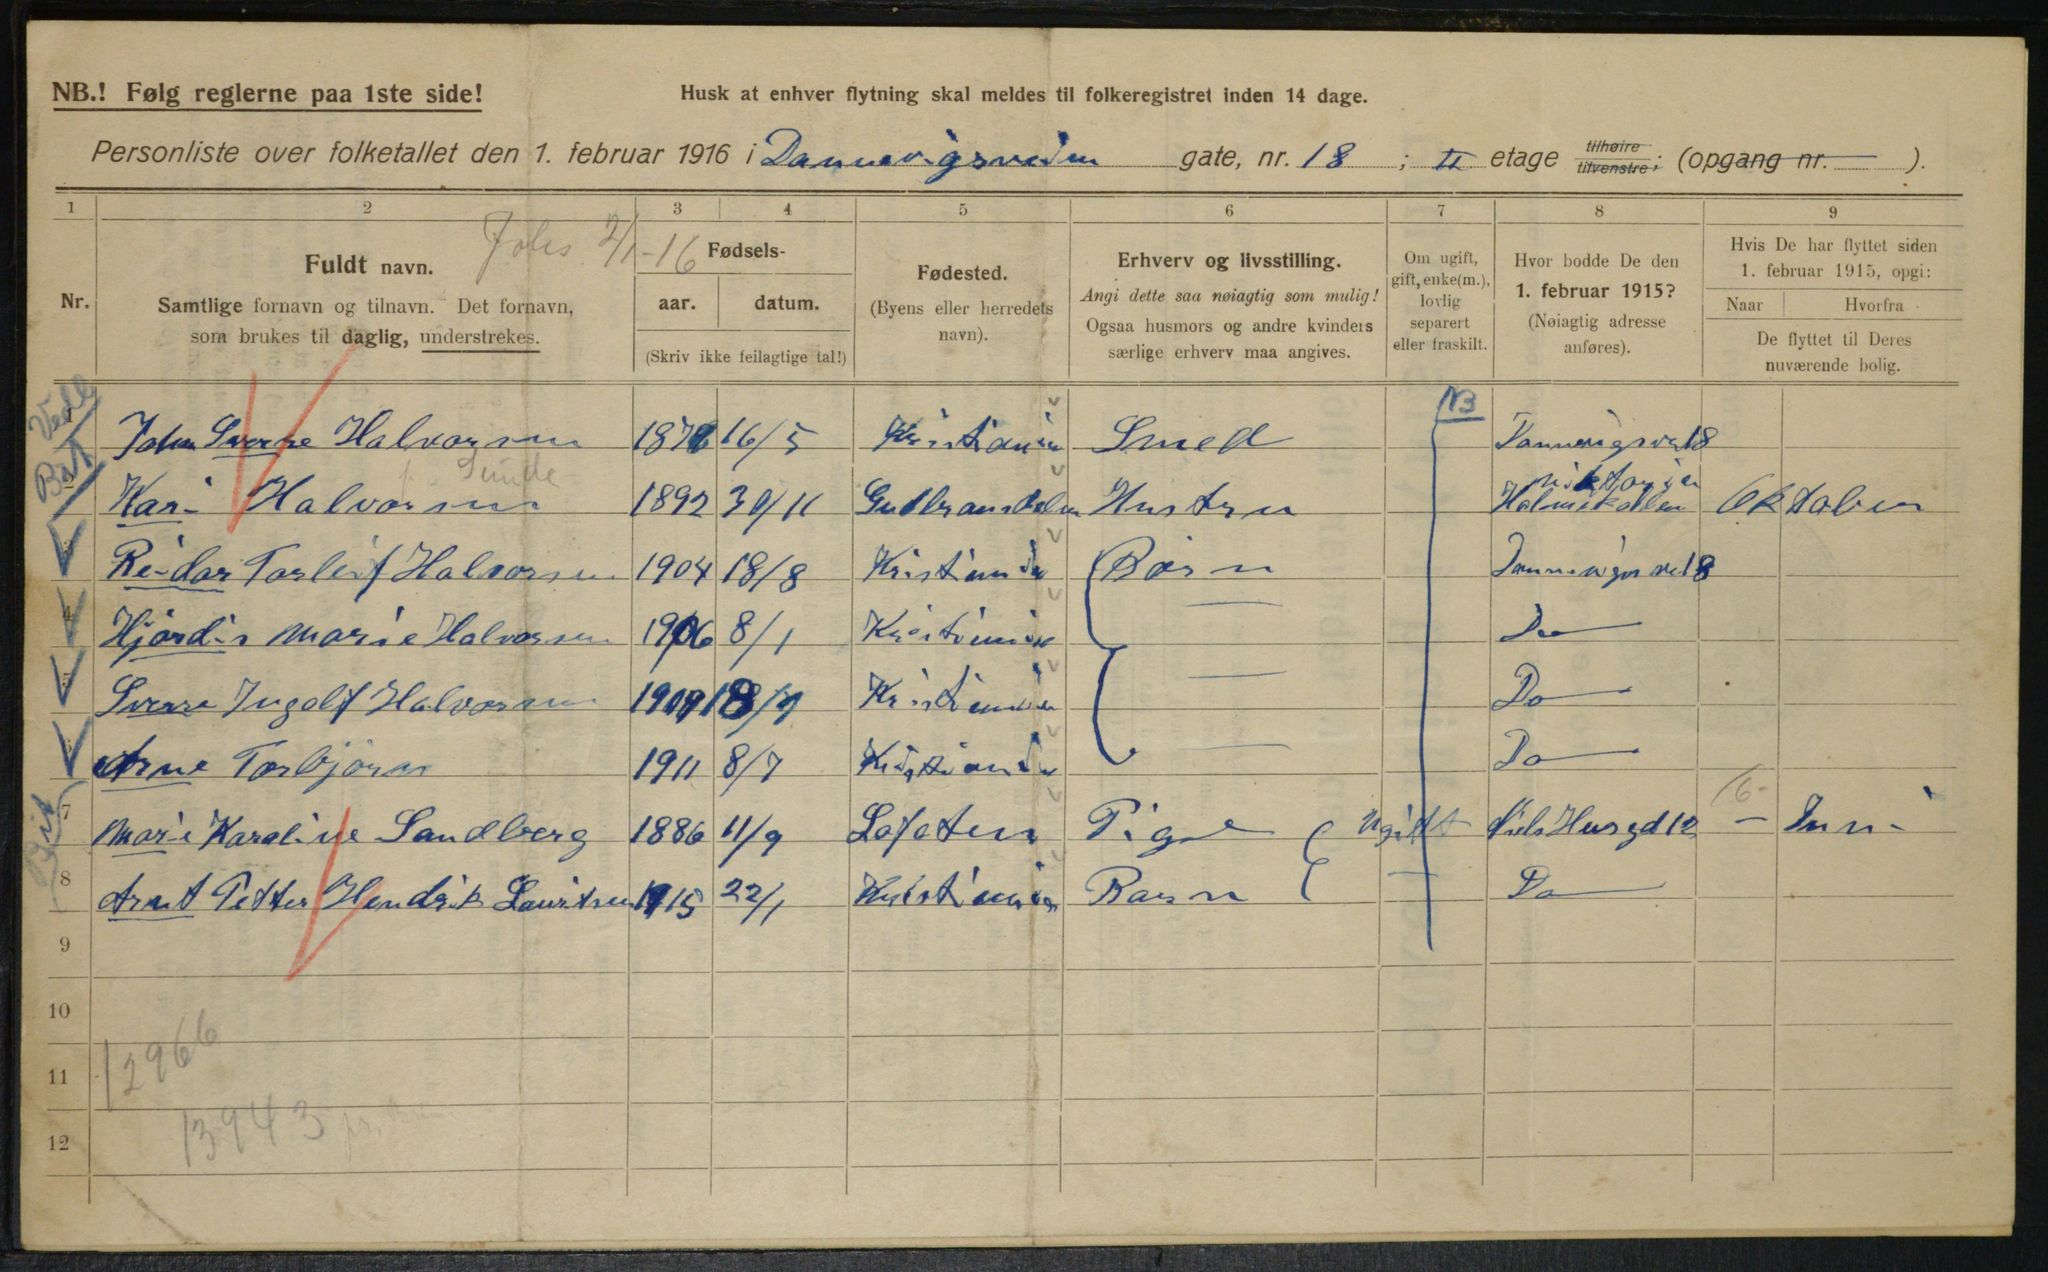 NB.! Følg reglerne paa 1ste side!
Husk at enhver flytning skal meldes til folkeregistret inden 14 dage.
Personliste over folketallet den 1. februar 1916 i Dannevigsveien gate, nr. 18 ; II etage tilhøire tilvenstre; (opgang nr. — ).
1 2 3 4 5 6 7 8 9
2/1-16
Nr.
Fuldt navn.
Samtlige fornavn og tilnavn. Det fornavn,
som brukes til daglig, understrekes.
Fødsels-
aar. datum.
(Skriv ikke feilagtige tal!)
Fødested.
(Byens eller herredets
navn).
Erhverv og livsstilling.
Angi dette saa nøiagtig som mulig!
Ogsaa husmors og andre kvinders
særlige erhverv maa angives.
Om ugift,
gift, enke(m.),
lovlig
separert
eller fraskilt.
Hvor bodde De den
1. februar 1915?
(Nøiagtig adresse
anføres).
Hvis De har flyttet siden
1. februar 1915, opgi:
Naar Hvorfra
De flyttet til Deres
nuværende bolig.
NB
Johan Sverre Halvorsen 1876 16/5 Kristiania Smed Dannevigsve 18
Sunde
Kari Halvorsen 1892 30/11 Gudbransdalen Hustru Holmekollen Oktober
Reidar Torleif Halvorsen 1904 18/8 Kristiania Børn Dannevigsve 18
4 Hjørdis Marie Halvorsen 1906 8/1 Kristiania — Do
Sverre Ingolf Halvorsen 1909 18/9 Kristiania — Do
Arne Torbjørn 1911 8/7 Kristiania — Do
7 Marie Karoline Sandberg 1886 11/9 Lofoten Pige Ugift Niels Husgd 12 — Juni
8 Arnt Petter Hendrik Lauritsen 1915 22/1 Kristiania Barn — Do
9
10
11
12
12966
13943